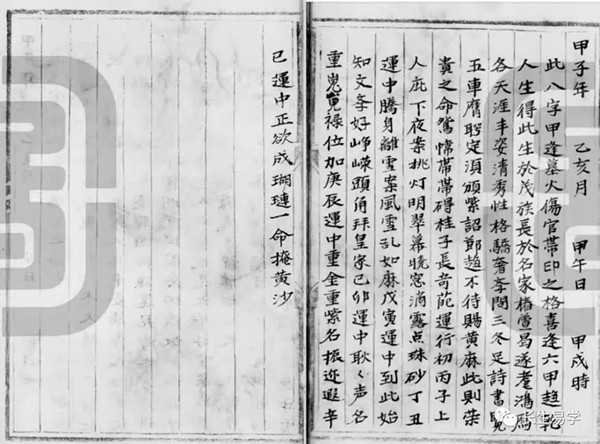 甲子年　乙亥月　甲午日　甲戌時
此八字甲逢墓火傷官帶印之格喜逢六甲趨乾
人生得此生於茂族長於名家椿萱易遂耄鴻雁
各天涯丰姿清秀性格驕奢三冬足詩書覽
五車膺定須頒紫詔鄭趙不待賜黃麻此則榮
貴之命鴛幃帶帶碍桂子長奇葩運行初丙子上
人庇下夜案挑灯明翠幕曉窓滴露点硃砂丁丑
運中騰身離雪案風雪乱如麻戊寅運中到此始
知文章好崢嶸頭角拜皇家己卯運中耿々声名
重嵬嵬祿位加庚辰運中重金重紫名振迩遐辛
巳運中正欲成瑚璉一命掩黃沙
生易学